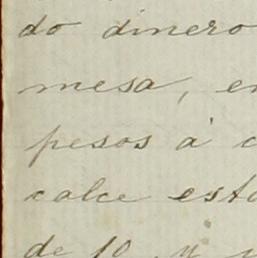 do dinero
mesa, en
pesos á c
calce esta
de 10. y